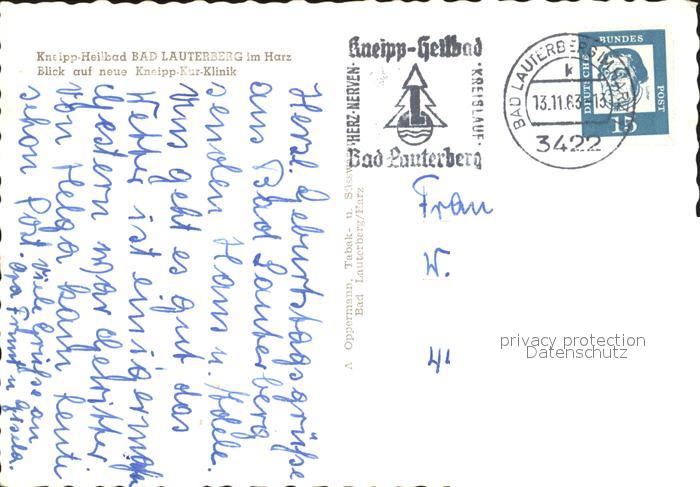 Kneipp-Heilbad BAD LAUTERBERG im Harz
Blick auf neue Kneipp-Kur-Klinik
Herzl. Geburtstagsgrüße
aus Bad Lauterberg
senden Hans u. Adele.
Uns geht es gut das
Wetter ist einigermaßen
Gestern war Gewitter
von Helga kam heute
schon Post. Viele Grüße an
u Gisela.
A Oppermann, Tabak- u. Süssw
Bad Lauterberg/Harz
Kneipp-Heilbad
HERZ·NERVEN·
KREISLAUF·
Bad Lauterberg
BAD LAUTERBERG IM HARZ
k
13.11.63-13
3422
DEUTSCHE BUNDESPOST
15
Frau
W.
41
privacy protection
Datenschutz